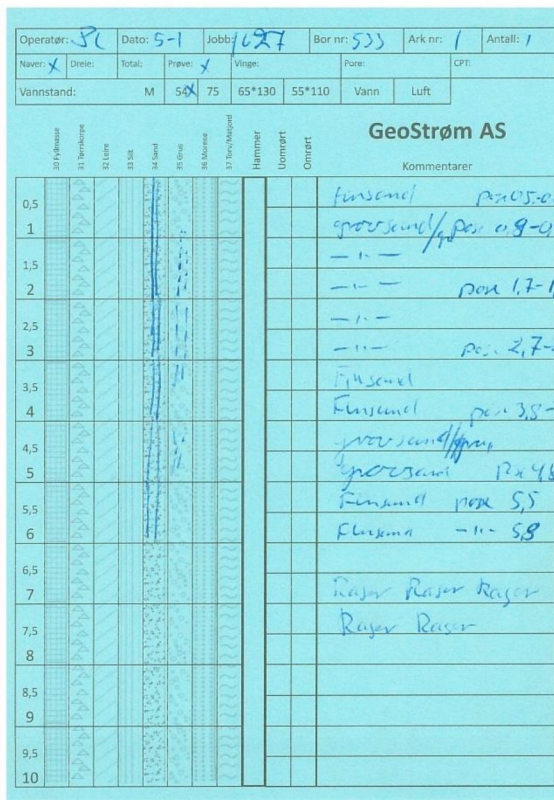 Operatør: Dato: 5-1 Jobb: 1627 Bor nr: 533 Ark nr: 1 Antall: 1
Naver: X Dreie: Total: Prøve: X Vinge: Pore: CPT:
Vannstand: M 54 X 75 65*130 55*110 Vann Luft
30 Fyllmasse
31 Tørrskorpe
32 Leire
33 Silt
34 Sand
35 Grus
36 Morene
37 Torv/Matjord
Hammer
Uomrørt
Omrørt
GeoStrøm AS
Kommentarer
0,5 finsand pose 0,5-0
1 grovsand/ pose 0,9-0,
1,5 —ıı—
2 —ıı— pose 1,7-1
2,5 —ıı—
3 —ıı— pose 2,7-
3,5 Finsand
4 Finsand pose 3,8-
4,5 grovsand/grus
5 grovsand 4,8
5,5 Finsand pose 5,5
6 Finsand —ıı— 5,8
6,5
7 Raser Raser Raser
7,5 Raser Raser
8
8,5
9
9,5
10